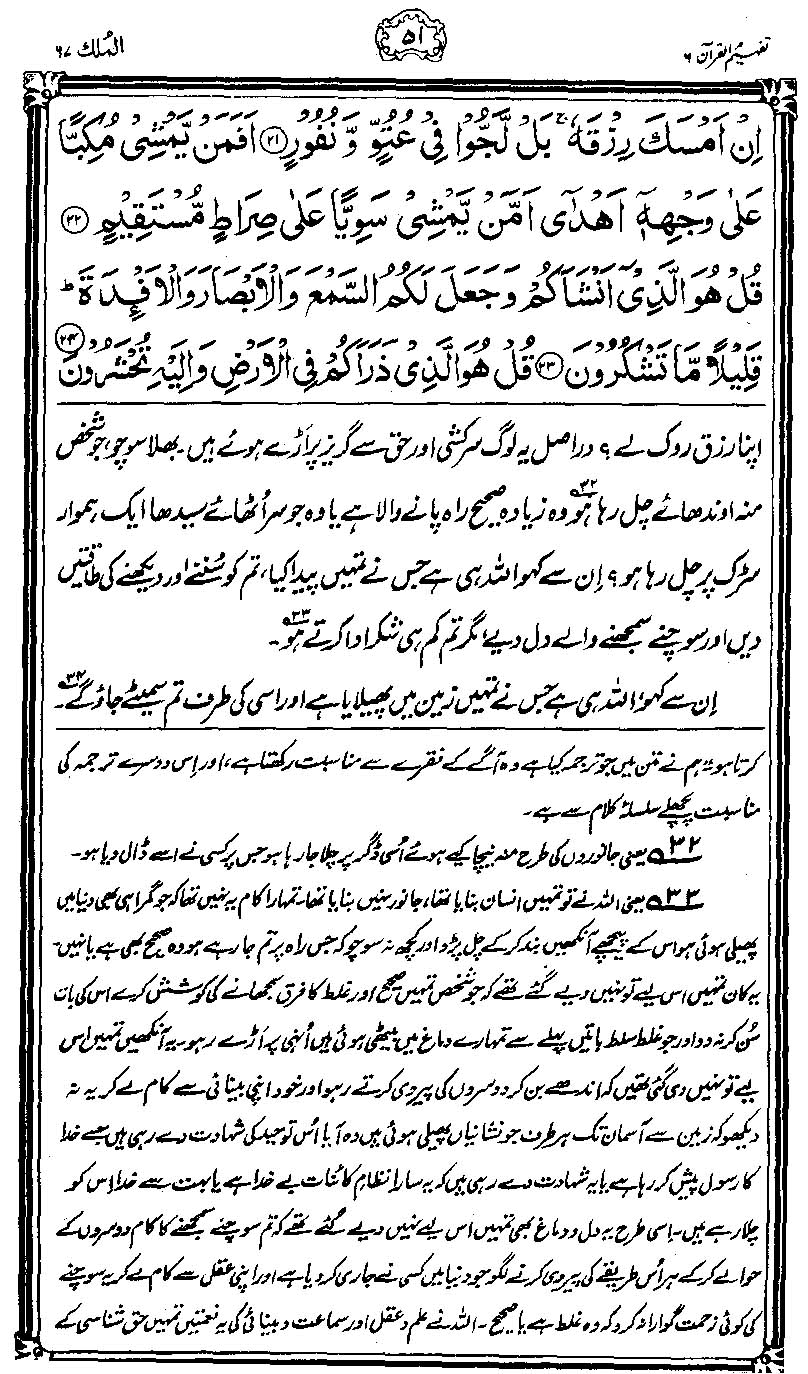 تفہیم القرآن ۶
۵۱
الملک ۶۷
اِنْ اَمْسَكَ رِزْقَهٗ ۚ بَلْ لَّجُّوْا فِیْ عُتُوٍّ وَّ نُفُوْرٍ ﴿۲۱﴾ اَفَمَنْ یَّمْشِیْ مُكِبًّا
عَلٰی وَجْهِهٖۤ اَهْدٰۤی اَمَّنْ یَّمْشِیْ سَوِیًّا عَلٰی صِرَاطٍ مُّسْتَقِیْمٍ ﴿۲۲﴾
قُلْ هُوَ الَّذِیْۤ اَنْشَاَكُمْ وَ جَعَلَ لَكُمُ السَّمْعَ وَ الْاَبْصَارَ وَ الْاَفْـِٕدَةَ ؕ
قَلِیْلًا مَّا تَشْكُرُوْنَ ﴿۲۳﴾ قُلْ هُوَ الَّذِیْ ذَرَاَكُمْ فِی الْاَرْضِ وَ اِلَیْهِ تُحْشَرُوْنَ ﴿۲۴﴾
اپنا رزق روک لے؟ دراصل یہ لوگ سرکشی اور حق سے گریز پر اَڑے ہوئے ہیں۔ بھلا سوچو، جو شخص
منہ اوندھائے چل رہا ہو۳۲ وہ زیادہ صحیح راہ پانے والا ہے یا وہ جو سر اُٹھائے سیدھا ایک ہموار
سڑک پر چل رہا ہو؟ اِن سے کہو اللہ ہی ہے جس نے تمہیں پیدا کیا، تم کو سُننے اور دیکھنے کی طاقتیں
دیں اور سوچنے سمجھنے والے دل دیے، مگر تم کم ہی شکر ادا کرتے ہو۳۳۔
اِن سے کہو، اللہ ہی ہے جس نے تمہیں زمین میں پھیلایا ہے اور اسی کی طرف تم سمیٹے جاؤ گے۳۴۔
کرتا ہو"؟ ہم نے متن میں جو ترجمہ کیا ہے وہ آگے کے فقرے سے مناسبت رکھتا ہے، اور اِس دوسرے ترجمہ کی
مناسبت پچھلے سلسلۂ کلام سے ہے۔
۳۲ یعنی جانوروں کی طرح منہ نیچا کیے ہوئے اُسی ڈگر پر چلا جا رہا ہو جس پر کسی نے اسے ڈال دیا ہو۔
۳۳ یعنی اللہ نے تو تمہیں انسان بنایا تھا، جانور نہیں بنایا تھا۔ تمہارا کام یہ نہیں تھا کہ جو گمراہی بھی دنیا میں
پھیلی ہوئی ہو اس کے پیچھے آنکھیں بند کر کے چل پڑو اور کچھ نہ سوچو کہ جس راہ پر تم جا رہے ہو وہ صحیح بھی ہے یا نہیں۔
یہ کان تمہیں اس لیے تو نہیں دیے گئے تھے کہ جو شخص تمہیں صحیح اور غلط کا فرق سمجھانے کی کوشش کرے اس کی بات
سُن کر نہ دو اور جو غلط سلط باتیں پہلے سے تمہارے دماغ میں بیٹھی ہوئی ہیں اُنہی پر اَڑے رہو۔ یہ آنکھیں تمہیں اس
لیے تو نہیں دی گئی تھیں کہ اندھے بن کر دوسروں کی پیروی کرتے رہو اور خود اپنی بینائی سے کام لے کر یہ نہ
دیکھو کہ زمین سے آسمان تک ہر طرف جو نشانیاں پھیلی ہوئی ہیں وہ آیا اُس توحید کی شہادت دے رہی ہیں جسے خدا
کا رسول پیش کر رہا ہے یا یہ شہادت دے رہی ہیں کہ یہ سارا نظامِ کائنات بے خدا ہے یا بہت سے خدا اِس کو
چلا رہے ہیں۔ اسی طرح یہ دل و دماغ بھی تمہیں اس لیے نہیں دیے گئے تھے کہ تم سوچنے سمجھنے کا کام دوسروں کے
حوالے کر کے ہر اُس طریقے کی پیروی کرنے لگو جو دنیا میں کسی نے جاری کر دیا ہے اور اپنی عقل سے کام لے کر یہ سوچنے
کی کوئی زحمت گوارا نہ کرو کہ وہ غلط ہے یا صحیح۔ اللہ نے علم و عقل اور سماعت و بینائی کی یہ نعمتیں تمہیں حق شناسی کے